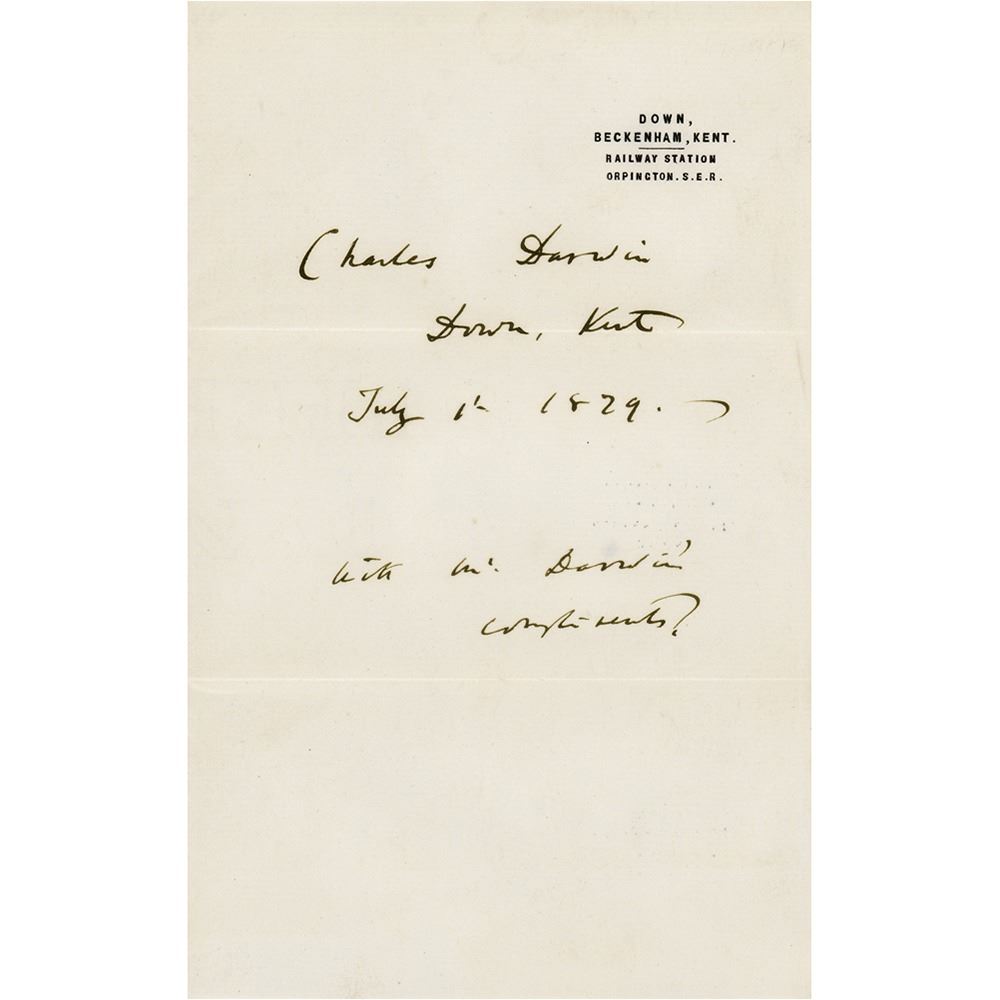 DOWN,
BECKENHAM, KENT.
RAILWAY STATION
ORPINGTON. S.E.R.
Charles Darwin
Down, Kent
July 1st 1879.
with Mr. Darwin's
compliments